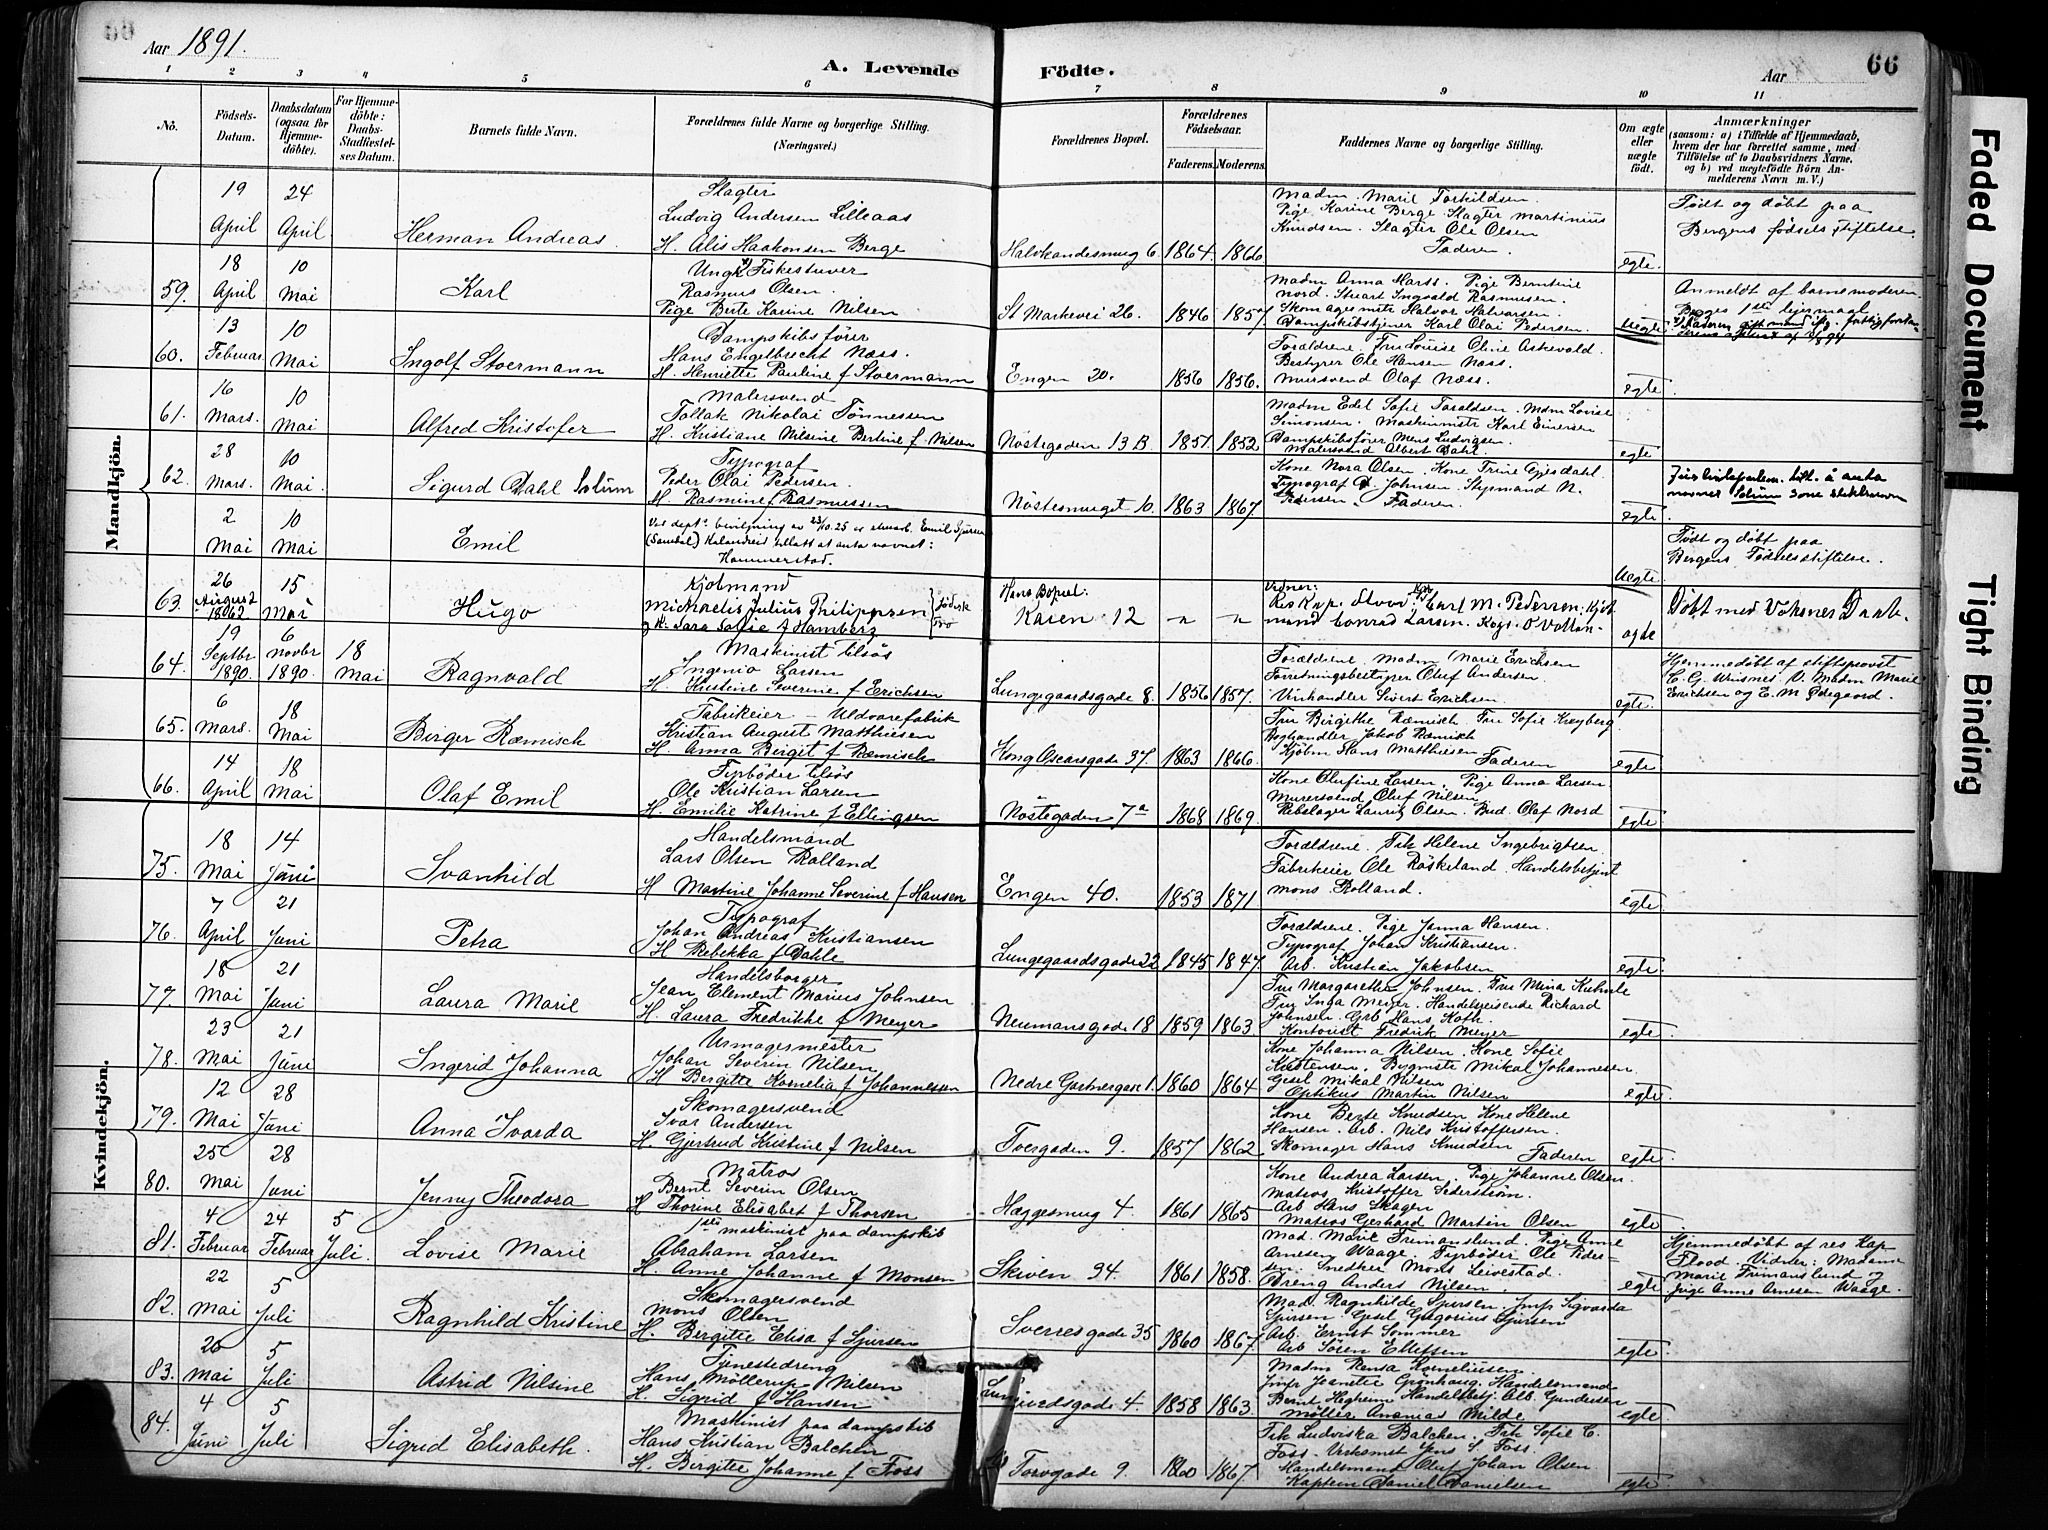 66
Aar 1891.
A. Levende Födte.
Aar
66
1 2 3 4 5 6 7 8 9 10 11
No.
Födsels-Datum.
Daabsdatum (ogsaa for Hjemme-döbte).
For Hjemme-döbte: Daabs-Stadfæstel-ses Datum.
Barnets fulde Navn.
Forældrenes fulde Navne og borgerlige Stilling. (Næringsvei.)
Forældrenes Bopæl.
Forældrenes Födselsaar.
Faderens. Moderens.
Faddernes Navne og borgerlige Stilling.
Om ægte eller uægte födt.
Anmærkninger
(saasom: a) i Tilfælde af Hjemmedaab, hvem der har forrettet samme, med Tilföielse af to Daabsvidners Navne, og b) ved uægtefödte Börn Anmelderens Navn m. V.)
Mandkjön.
19 April 24 April Herman Andreas
Slagter
Ludvig Andersen Lilleaas
H. Alis Haakonsen Berge
Halvkandesmug 6. 1864. 1866
Madm. Marie Torkildsen.
Pige Karine Berge. Slagter Martinius
Knudsen. Slagter Ole Olsen
Faderen.
egte.
Født og døbt paa
Bergens fødsels stiftelse.
59. 18 April 10 Mai Karl
Ungk. Fiskestuver
Rasmus Olsen.
Pige Berte Karine Nilsen
St Markevei 26. 1846 1857.
Madm Anna Harss. Pige Berntine
Nord. Stuart Ingvald Rasmusen.
Skomagermstr Halvor Halvorsen.
Dampskibstjener Karl Olai Pedersen.
Uegte
Anmeldt af barnemoderen.
Beges 1ste leiermaal
60. 13 Februar 10 Mai Ingolf Stoermann
Dampskibsfører
Hans Engelbrecht Næss.
H. Henriette Pauline f Stoermann
Engen 20. 1856 1856.
Forældrene. Fru Louise Oline Askevold.
Bestyrer Ole Hansen Næss.
Mursvend Olaf Næss.
egte
61. 16 Mars. 10 Mai Alfred Kristofer
Malersvend
Tollak Nikolai Tønnessen
H. Kristiane Nilsine Bertine f. Nilsen
Nøstegaden 13 B. 1851. 1852
Madm Edel Sofie Toraldsen. Mdm Lovise
Simonsen. Maskinmstr Karl Einersen
Dampskibsfører Mons Ludvigsen.
Malersvend Albert Dahl.
egte
62. 28 Mars. 10 Mai. Sigurd Dahl Solum
Typograf
Peder Olai Pedersen.
H. Rasmine f Rasmussen
Nøstesmuget 10. 1863 1867
Kone Nora Olsen. Kone Trine Gjesdahl.
Typograf D. Johnsen. Styrmand N.
Pedersen. Faderen.
egte
2 Mai 10 Mai Emil
Ved dept's bevilgning av 23/10.25 er
Hammerstad.
Uegte
Født og døbt paa
Bergens Fødselsstiftelse.
63. 26 August 1862 15 Mai Hugo
Kjøbmand
Michaelis Julius Philippsen
og H. Sara Sofie f Hamberg
Jødisk Tro
Hans Bopæl:
Karen 12 " "
Vidner:
Carl M. Pedersen. Kjøbmand Conrad Larsen.
egte
Døbt med Voksnes Daab.
64. 19 Septbr 1890. 6 novbr 1890. 18 Mai Ragnvald
Maskinist tilsøs
Ingenio Larsen
H. Kristine Severine f Erichsen
Lungegaardsgade 8. 1856 1857.
Forældrene. Madm Marie Erichsen
Forretningsbestyrer Oluf Andersen.
Vinhandler Sivert Erichsen.
egte.
Hjemmedøbt af stiftsprovst
C. G. Wrisnes V. Madm Marie
Erichsen og E. M. Ødegaard.
65. 6 Mars. 18 Mai Birger Ræmisch
Fabrikeier - Uldvarefabrik
Kristian August Matthiesen
H. Anna Birgit f Ræmisch
Kong Oscarsgade 37. 1863 1866.
Fru Birgithe Ræmisch. Fru Sofie Krøyberg
Boghandler Jakob Ræmisch
Kjøbm Hans Matthiesen Faderen
egte
66. 14 April 18 Mai Olaf Emil
Fyrbøder tilsøs
Ole Kristian Larsen
H. Emilie Katrine f Ellingsen
Nøstegaden 7a 1868 1869.
Kone Olufine Larsen. Pige Anna Larsen
Murersvend Oluf Nilsen
Rebslager Lauritz Olsen. Bud Olaf Nord
egte
Kvindekjön.
75. 18 Mai 14 Juni Svanhild
Handelsmand
Lars Olsen Rolland
H Martine Johanne Severine f Hansen
Engen 40. 1853 1871
Forældrene. Frk Helene Ingebrigtsen.
Fabrikeier Ole Røskeland. Handelsbetjent
Mons Rolland.
egte.
76. 7 April 21 Juni Petra
Typograf
Johan Andreas Kristiansen
H Rebekka f Dahle
Lungegaardsgade 22 1845 1847
Forældrene. Pige Janna Hansen.
Typograf Johan Kristiansen.
Arb. Kristian Jakobsen
egte.
77. 18 Mai 21 Juni Laura Marie
Handelsborger
Jean Clement Marius Johnsen
H. Laura Fredrikke f Meyer
Neumansgade 18 1859 1863
Fru Margarethe Johnsen. Fru Mina Kuhnle
Fru Inga Meyer. Handelsreisende Richard
Johnsen. Grb Hans Koth.
Kontorist Fredrik Meyer
egte
78. 23 Mai 21 Juni Ingerid Johanna
Urmagermester
Johan Severin Nilsen
H Bergitte Kornelia f Johannesen
Nedre Gartnergade 1. 1860 1864
Kone Johanna Nilsen. Kone Sofie
Kristensen. Bygmstr Mikal Johannesen,
Gesel Mikal Nilsen
Optikus Martin Nilsen
egte.
79. 12 Mai 28 Juni Anna Ivarda
Skomagersvend
Ivar Andersen
H. Gjertrud Kristine f Nilsen
Tvergaden 9. 1857 1862
Kone Berte Knudsen Kone Helene
Hansen. Arb. Nils Kristoffersen.
Skomager Hans Knudsen Faderen
egte.
80. 25 Mai 28 Juni Jenny Theodora
Matros
Bernt Severin Olsen
H Thorine Elisabet f Thorsen
Hæggesmug 4. 1861 1865
Kone Andrea Larsen. Pige Johanne Olsen.
Matros Kristoffer Sederstrøm.
Arb Hans Skagen
Matros Gerhard Martin Olsen
egte
81. 4 Februar 24 Februar 5 Juli. Lovise Marie
1ste maskinist paa dampskib
Abraham Larsen
H. Anne Johanne f Monsen
Skiven 94. 1861 1858.
Mad. Marie Frimanslund. Pige Anne
Arnesen Waage. Fyrbøder Ole Peder-
sen. Snedker Mons Leivestad.
Dreng Anders Nilsen.
egte
Hjemmedøbt af res Kap
Flood. Vidner: Madame
Marie Frimanslund og
pige Anne Arnesen Waage.
82. 22 Mai 5 Juli Ragnhild Kristine
Skomagersvend
Mons Olsen
H. Bergitte Elisa f Sjursen
Sverresgade 35 1860 1867
Mad. Ragnhilde Sjursen. Jmf Sigvarda
Sjursen. Gesel Gregorius Sjursen
Arb. Ernst Sommer
Arb Søren Ellefsen
egte
83. 26 Mai 5 Juli Astrid Nilsine
Tjenestedreng
Hans Møllerup Nilsen
H. Sigrid f Hansen
4. 1858 1863
Madm Rensa Korneliusen
Jmf Jeanette Grønhaug. Handelsmand
Bernt Hagheim Handelsbetj. Alb. Gundersen
Møller Ananias Milde
egte
84. 4 Juni 5 Juli Sigrid Elisabeth.
Maskinist paa dampskib
Hans Kristian Balchen
H. Bergitte Johanne f Foss
Torvgade 9. 1860 1867
Frk Ludviska Balchen. Frk Sofie C.
Foss. Jens S. Foss.
Handelsmand Oluf Johan Olsen.
Kaptein Daniel Danielsen
egte.
Faded Document
Tight Binding